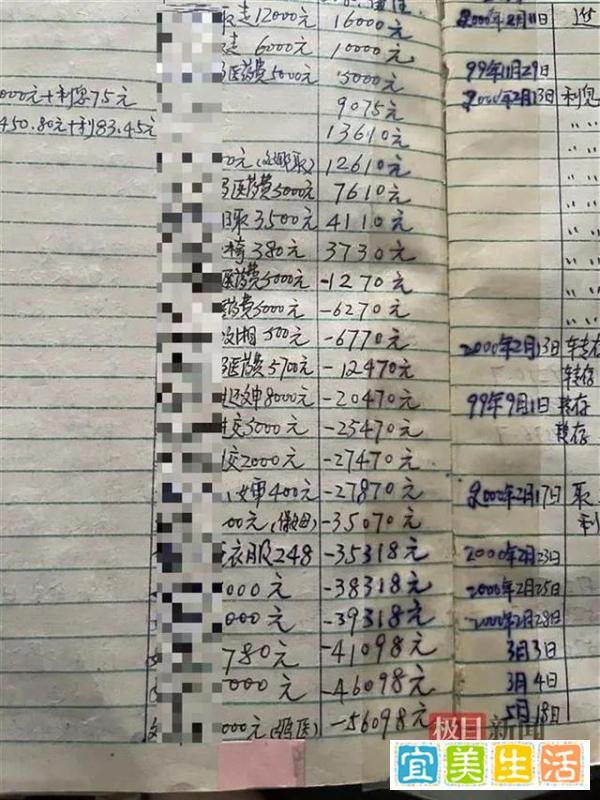 走12000元 16000元 2000年2月11日
走6000元 10000元
医药费5000元 5000元 99年11月29日
000元+利息75元 9075元 2000年2月13日 利息
450.80元+利83.45元 13610元 〃
00元 12610元 〃
医药费5000元 7610元 〃
取3500元 4110元 〃
椅380元 3730元 〃
医药费5000元 -1270元 〃
药费5000元 -6270元 〃
500元 -6770元 2000年2月13日 转存
医药费5700元 -12470元 转存
8000元 -20470元 99年9月1日 转存
交5000元 -25470元 转存
交2000元 -27470元
400元 -27870元 2000年2月17日 取
00元(保姆) -35070元 利
衣服248 -35318元 2000年2月23日
000元 -38318元 2000年2月25日
000元 -39318元 2000年2月28日
780元 -41098元 3月3日
000元 -46098元 3月4日
000元 -56098元 5月18日
极目新闻
宜美生活